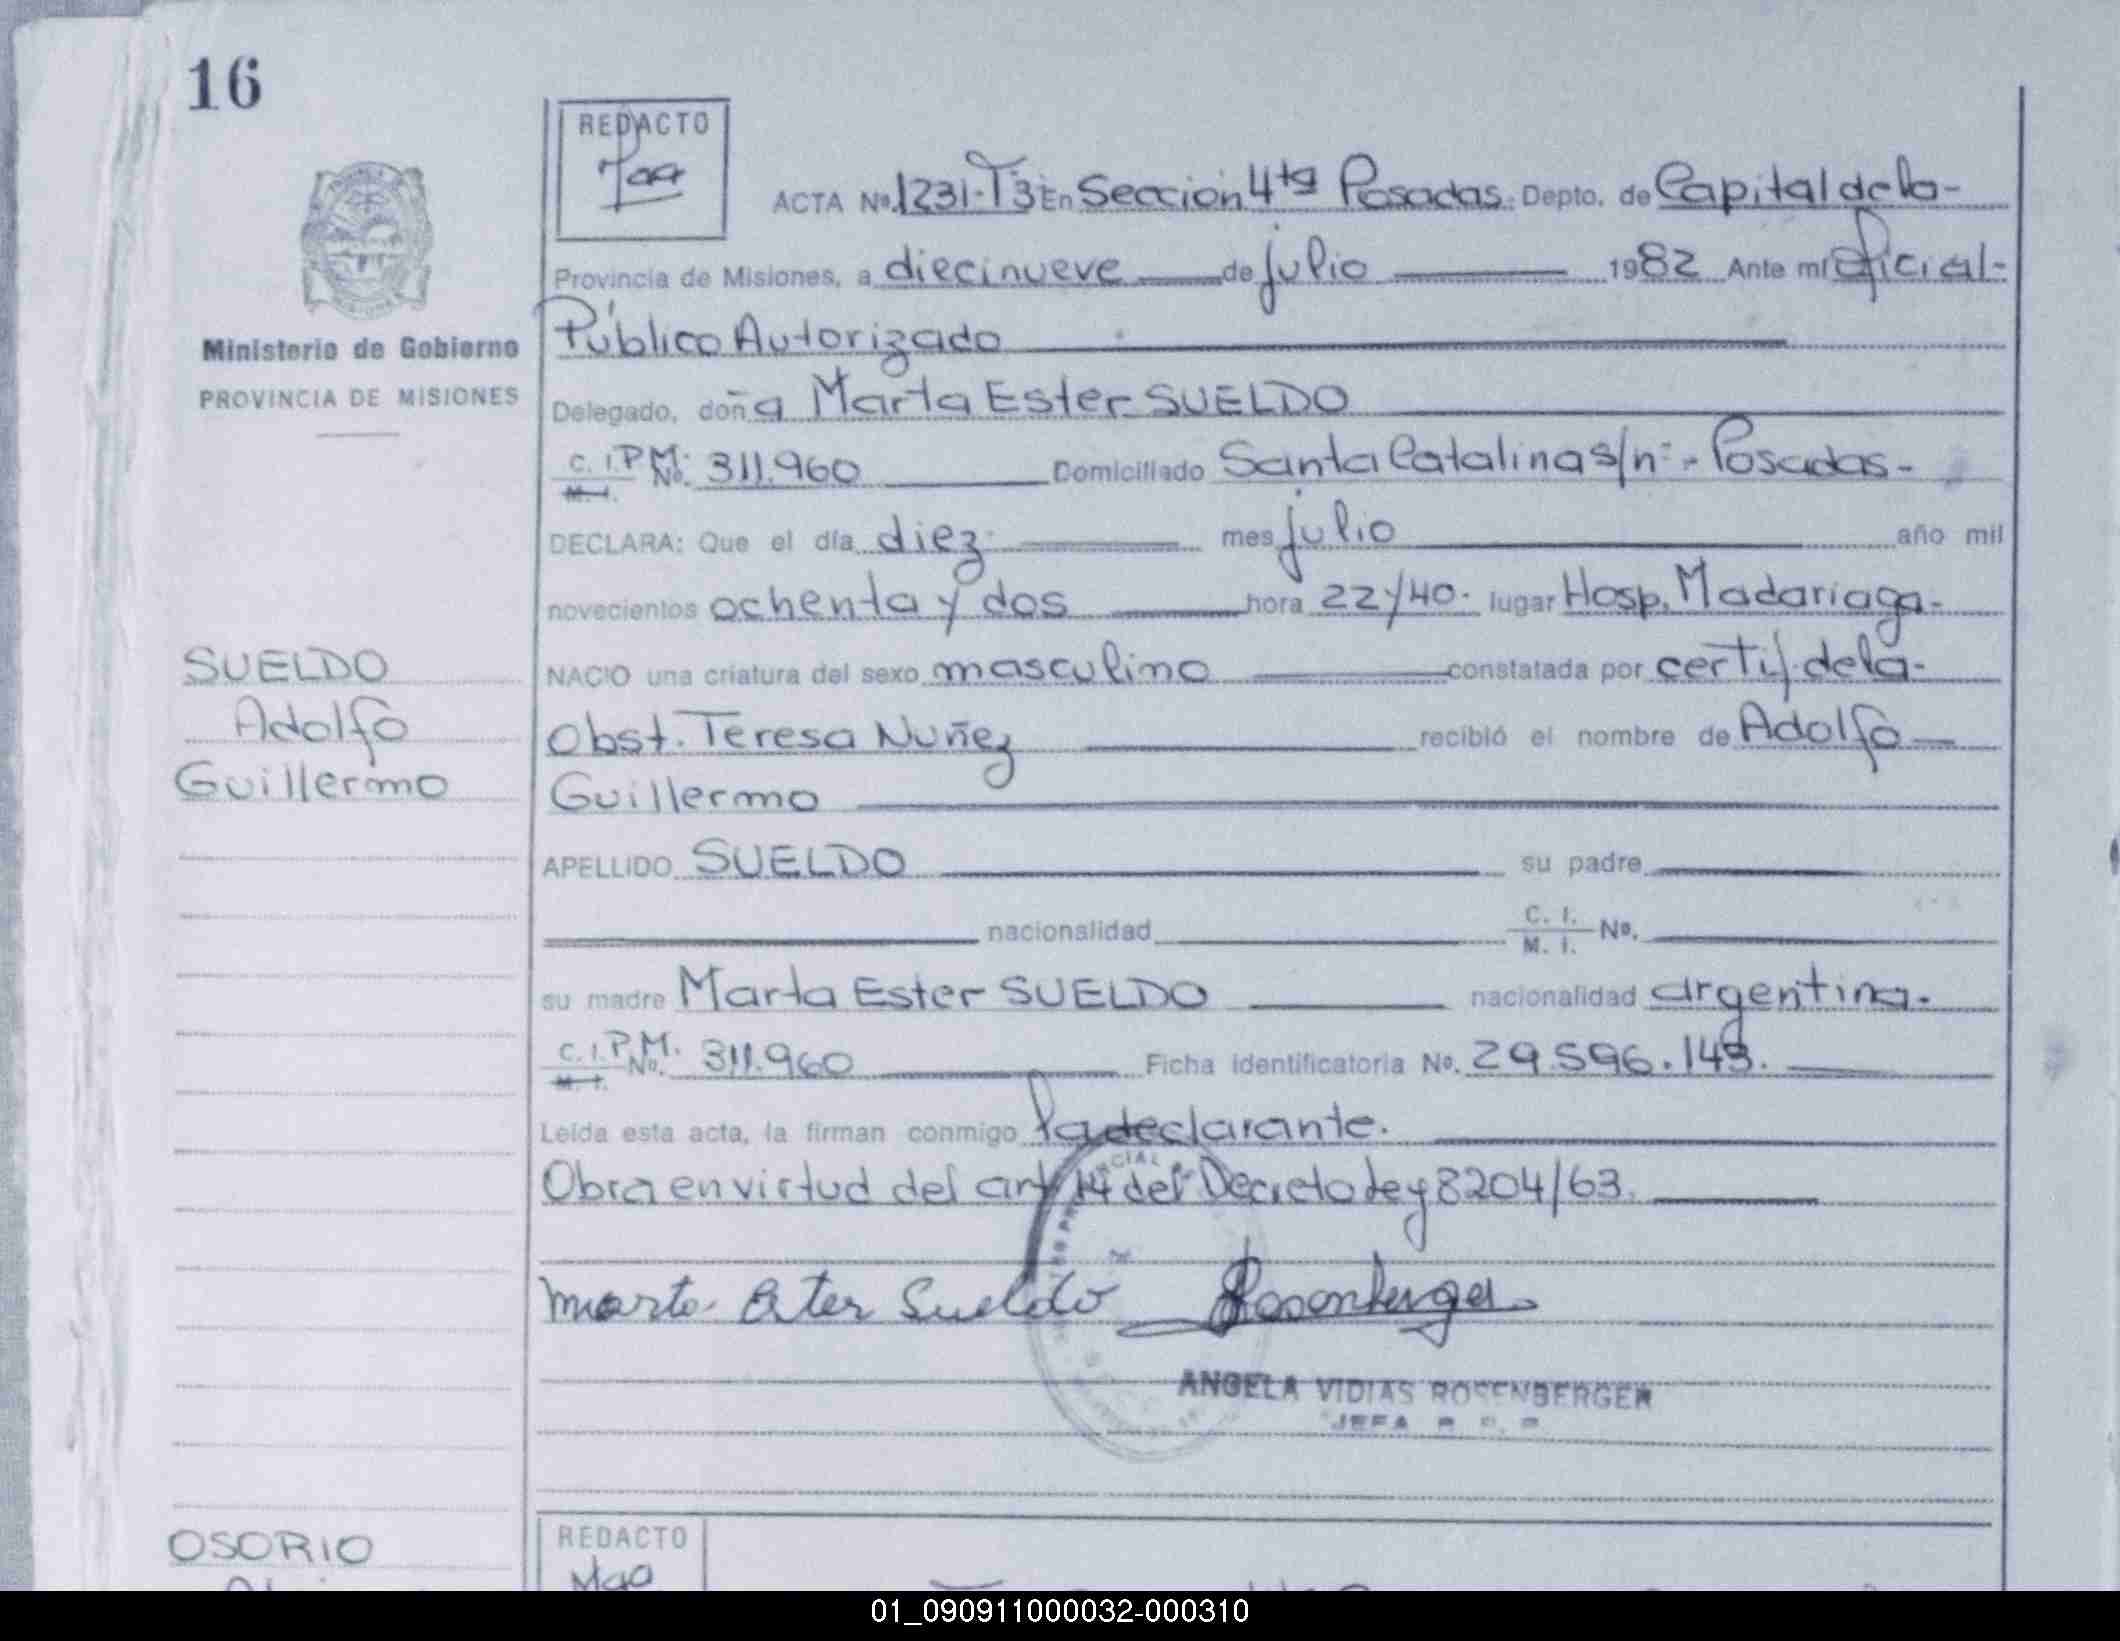 16
REDACTO
ACTA Nº 1231-T3 En Sección 4ta Posadas. Depto. de Capital de la-
Provincia de Misiones, a diecinueve de julio 1982 Ante mí Oficial-
Público Autorizado
Ministerio de Gobierno
PROVINCIA DE MISIONES
Delegado, doña Marta Ester SUELDO
C. I. P.M. Nº. 311.960 Domiciliado Santa Catalina s/nº - Posadas-
M. I.
DECLARA: Que el día diez mes julio año mil
novecientos ochenta y dos hora 22y40. lugar Hosp. Madariaga-
SUELDO
NACIO una criatura del sexo masculino constatada por certif. de la-
Adolfo
Obst. Teresa Nuñez recibió el nombre de Adolfo
Guillermo
Guillermo
APELLIDO SUELDO su padre
nacionalidad C. I. Nº.
M. I.
su madre Marta Ester SUELDO nacionalidad argentina.
C. I. P.M. Nº. 311.960 Ficha identificatoria Nº. 29.596.143.
M. I.
Leída esta acta, la firman conmigo la declarante.
Obra en virtud del art 14 del Decreto Ley 8204/63.
Marta Ester Sueldo Rosenberger
ANGELA VIDIAS ROSENBERGER
JEFA
OSORIO
REDACTO
01_090911000032-000310